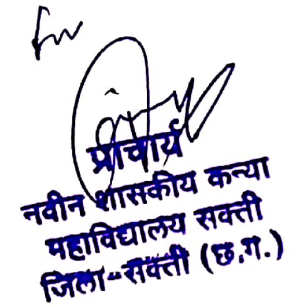 for
प्राचार्य
नवीन शासकीय कन्या
महाविद्यालय सक्ती
जिला-सक्ती (छ.ग.)